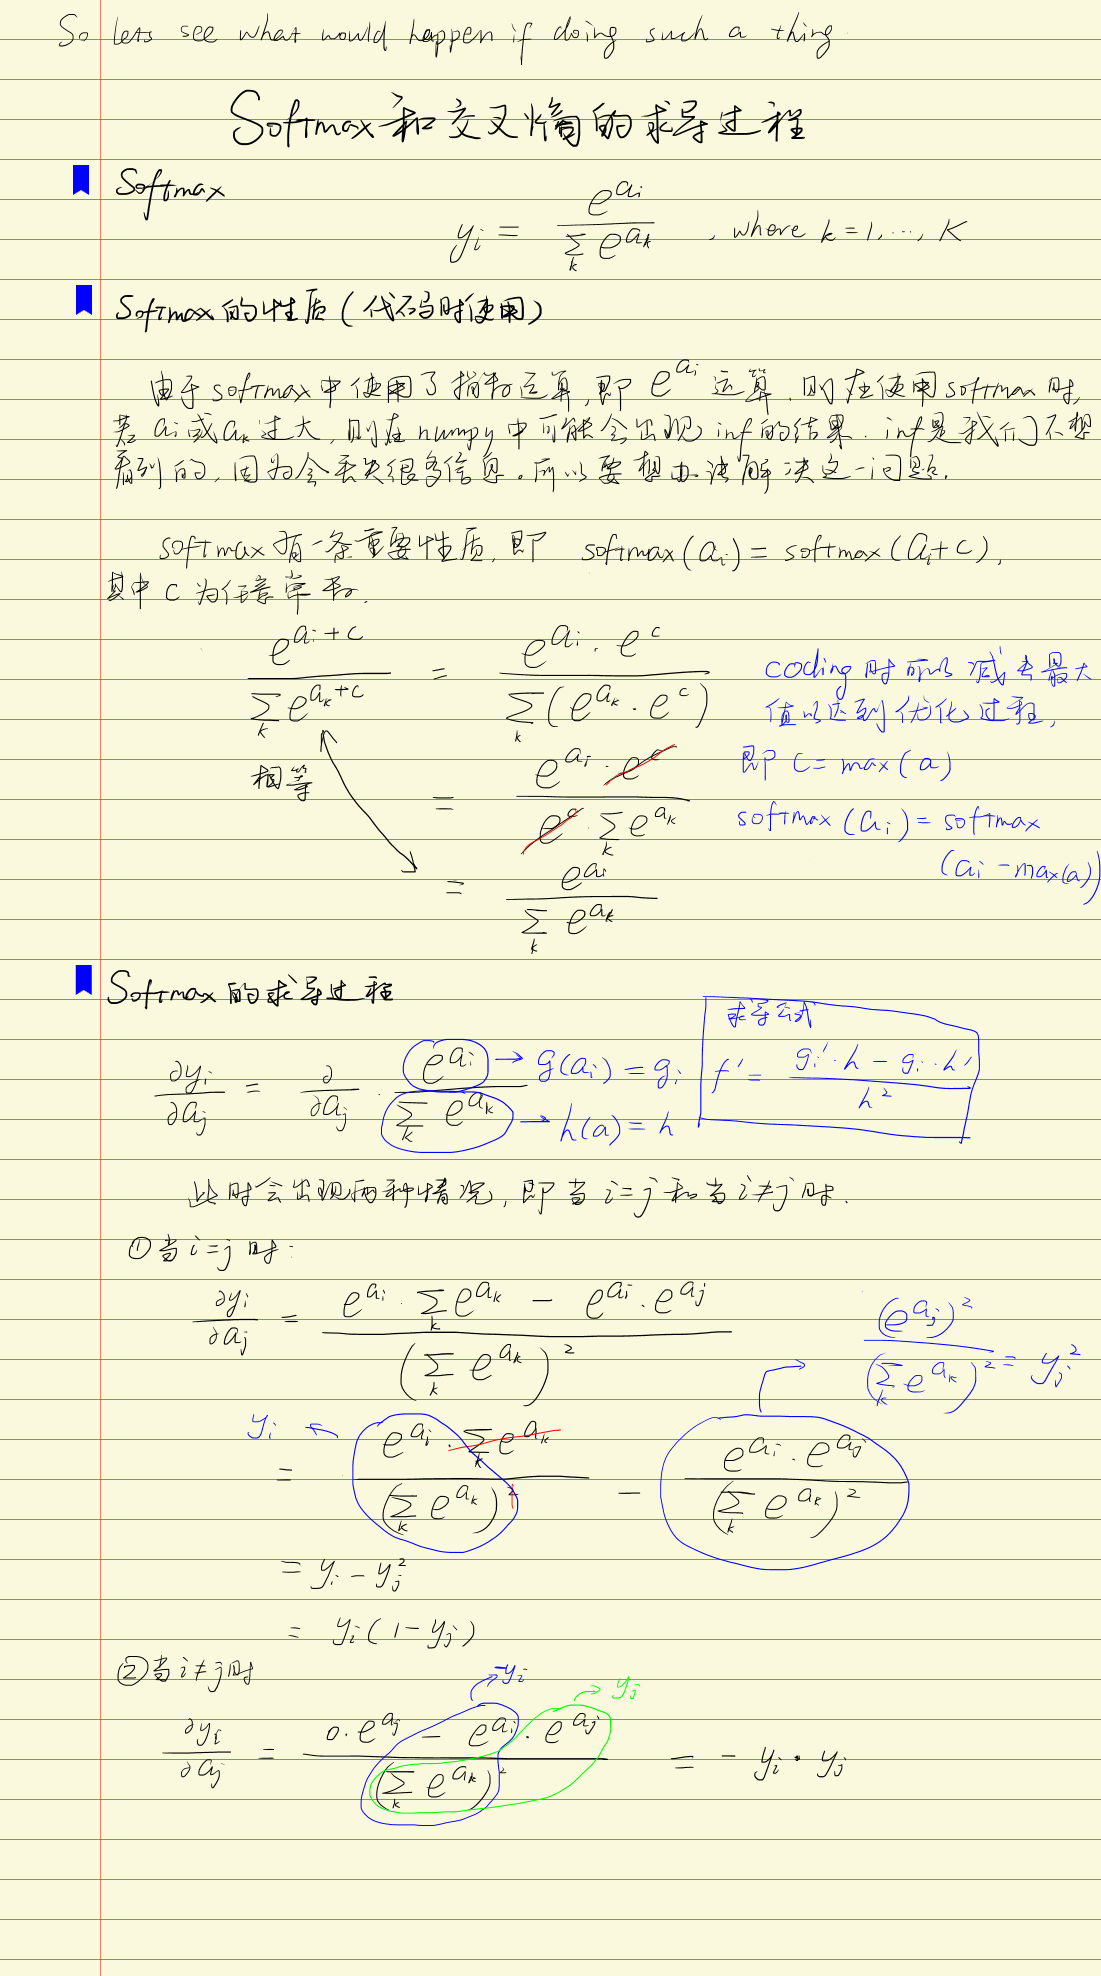 So lets see what would happen if doing such a thing.
Softmax和交叉熵的求导过程
Softmax
y_i = e^{a_i} / Σ_k e^{a_k} , where k=1,…, K
Softmax的性质(代码时使用)
由于softmax中使用了指数运算,即 e^{a_i} 运算. 则在使用softmax时,
若 a_i 或 a_k 过大, 则在numpy中可能会出现 inf 的结果. inf是我们不想
看到的, 因为会丢失很多信息。所以要想办法解决这一问题.
softmax有一条重要性质, 即 softmax(a_i) = softmax(a_i+c),
其中 c 为任意常数.
e^{a_i+c} / Σ_k e^{a_k+c} = e^{a_i} · e^c / Σ_k (e^{a_k} · e^c)
coding时可以减去最大
值以达到优化过程,
相等
= e^{a_i} · e^c / e^c · Σ_k e^{a_k}
即 c = max(a)
softmax(a_i) = softmax
(a_i - max(a))
= e^{a_i} / Σ_k e^{a_k}
Softmax的求导过程
∂y_i / ∂a_j = ∂ / ∂a_j · e^{a_i} / Σ_k e^{a_k}
→ g(a_i) = g_i
→ h(a) = h
求导公式
f' = g_i' · h - g_i · h' / h^2
此时会出现两种情况, 即当 i=j 和当 i≠j 时.
①当 i=j 时:
∂y_i / ∂a_j = e^{a_i} · Σ_k e^{a_k} - e^{a_i} · e^{a_j} / (Σ_k e^{a_k})^2
(e^{a_j})^2 / (Σ_k e^{a_k})^2 = y_j^2
y_i
= e^{a_i} · Σ_k e^{a_k} / (Σ_k e^{a_k})^2 - e^{a_i} · e^{a_j} / (Σ_k e^{a_k})^2
= y_i - y_j^2
= y_i (1 - y_j)
②当 i≠j 时
-y_i
y_j
∂y_i / ∂a_j = 0 · e^{a_j} - e^{a_i} · e^{a_j} / (Σ_k e^{a_k})^2 = - y_i · y_j